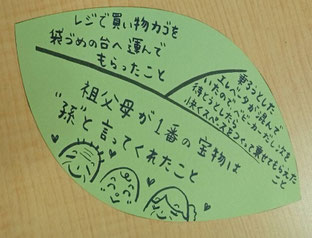 レジで買い物カゴを
袋づめの台へ運んで
もらったこと
乗ろうとした
エレベータが混んで
いたのでベビーカーだし次を
待とうとしたら
快くスペースをつくって乗せてもらえた
こと
祖父母が1番の宝物は
"孫"と言ってくれたこと